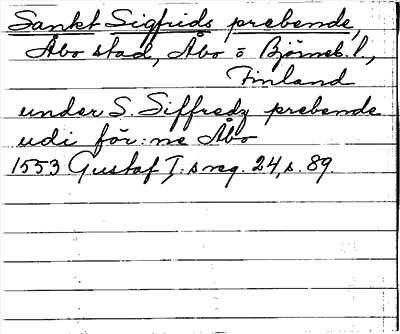 Sankt Sigfrids prebende,
Åbo stad, Åbo o Björneb. l.,
Finland
under S. Siffredz prebende
udi för:ne Åbo
1553 Gustaf I:s reg. 24, s. 89.